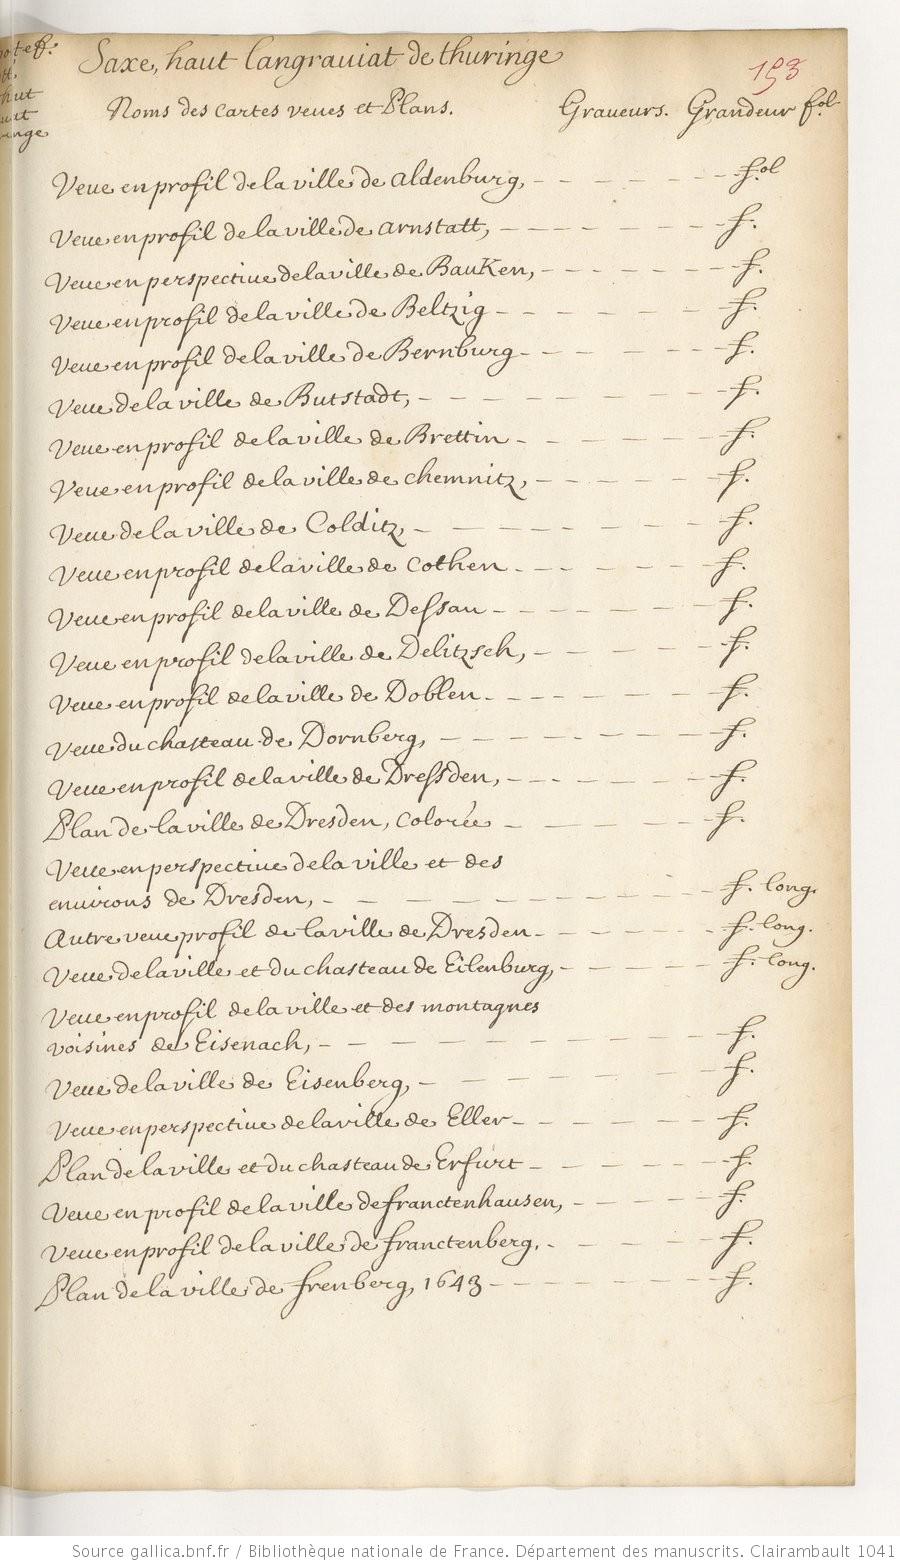 Saxe, haut Langraviat de thuringe
153
Noms des cartes veues et Plans. Graveurs. Grandeur fol.
Veue en profil de la ville de aldenburg, - - - - - - - fol
Veue en profil de la ville de arnstatt, - - - - - - - f.
Veue en perspective de la ville de Bauken, - - - - - - f.
Veue en profil de la ville de Beltzig - - - - - - f.
Veue en profil de la ville de Bernburg - - - - - - f.
Veue de la ville de Butstadt, - - - - - - - f.
Veue en profil de la ville de Brettin - - - - - - f.
Veue en profil de la ville de chemnitz, - - - - - - f.
Veue de la ville de Colditz, - - - - - - - f.
Veue en profil de la ville de cothen - - - - - - f.
Veue en profil de la ville de Dessau - - - - - - f.
Veue en profil de la ville de Delitzsch, - - - - - - f.
Veue en profil de la ville de Doblen - - - - - - - f.
Veue du chasteau de Dornberg, - - - - - - - f.
Veue en profil de la ville de Dressden, - - - - - - f.
Plan de la ville de Dresden, colorée - - - - - f.
Veue en perspective de la ville et des
environs de Dresden, - - - - - - - - - - f. long.
Autre veue profil de la ville de Dresden - - - - - f. long.
Veue de la ville et du chasteau de Eilenburg, - - - - - f. long.
Veue en profil de la ville et des montagnes
voisines de Eisenach, - - - - - - - - - f.
Veue de la ville de Eisenberg, - - - - - - - f.
Veue en perspective de la ville de Eller - - - - - - f.
Plan de la ville et du chasteau de Erfurt - - - - - - f.
Veue en profil de la ville de franctenhausen, - - - - - f.
Veue en profil de la ville de franctenberg, - - - - - f.
Plan de la ville de frenberg, 1643 - - - - - - f.
Source gallica.bnf.fr / Bibliothèque nationale de France. Département des manuscrits. Clairambault 1041